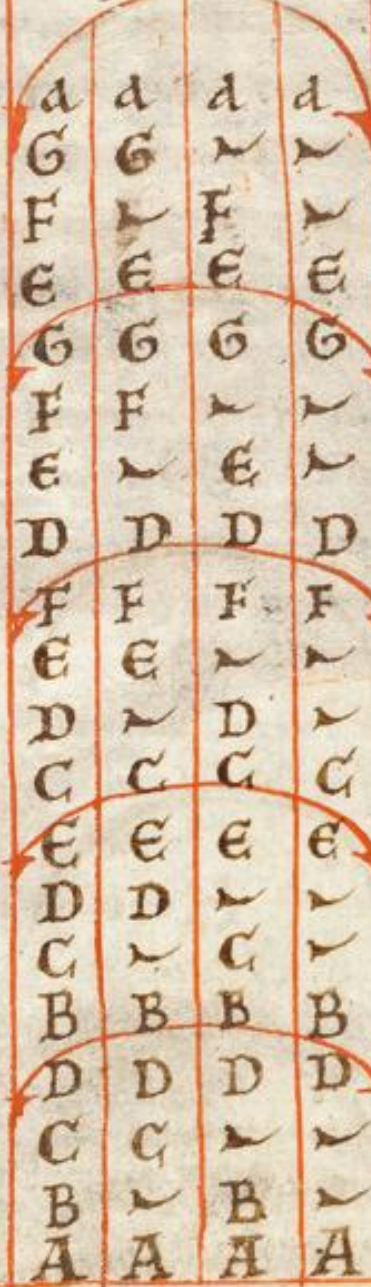 a a a a
G G ~ ~
F ~ F ~
E E E E
G G G G
F F ~ ~
E ~ E ~
D D D D
F F F F
E E ~ ~
D ~ D ~
C C C C
E E E E
D D ~ ~
C ~ C ~
B B B B
D D D D
C C ~ ~
B ~ B ~
A A A A